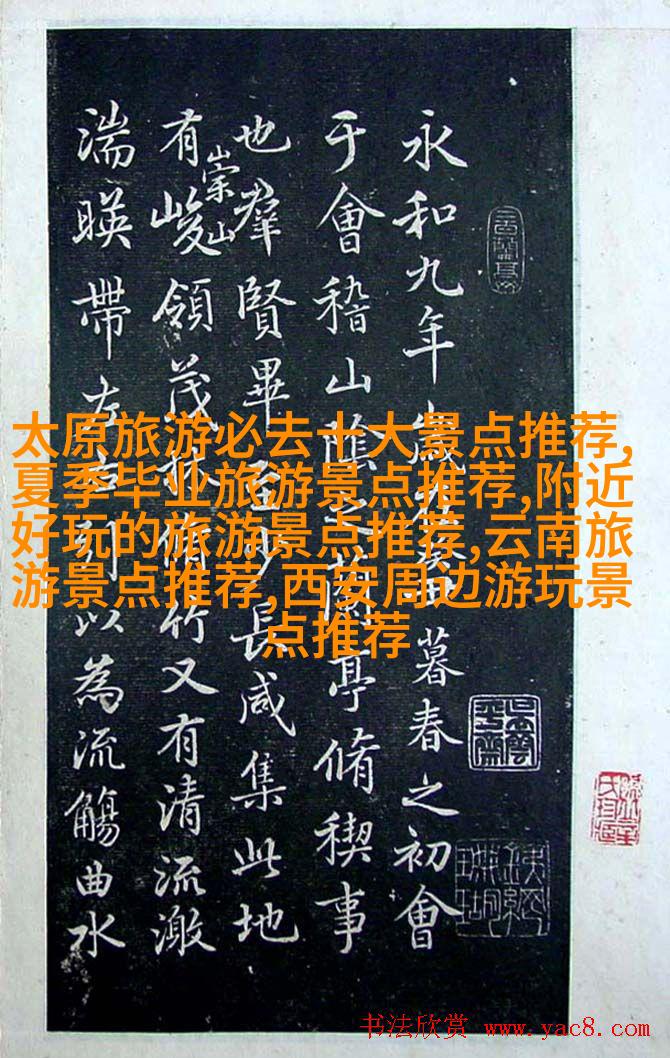 永和九年歲在癸丑暮春之初會
于會稽山陰之蘭亭脩稧事
也羣賢畢至少長咸集此地
有崇山峻領茂林脩竹又有清流激
湍暎帶左右引以為流觴曲水
太原旅游必去十大景点推荐,
夏季毕业旅游景点推荐,附近
好玩的旅游景点推荐,云南旅
游景点推荐,西安周边游玩景
点推荐
书法欣赏 www.yac8.com